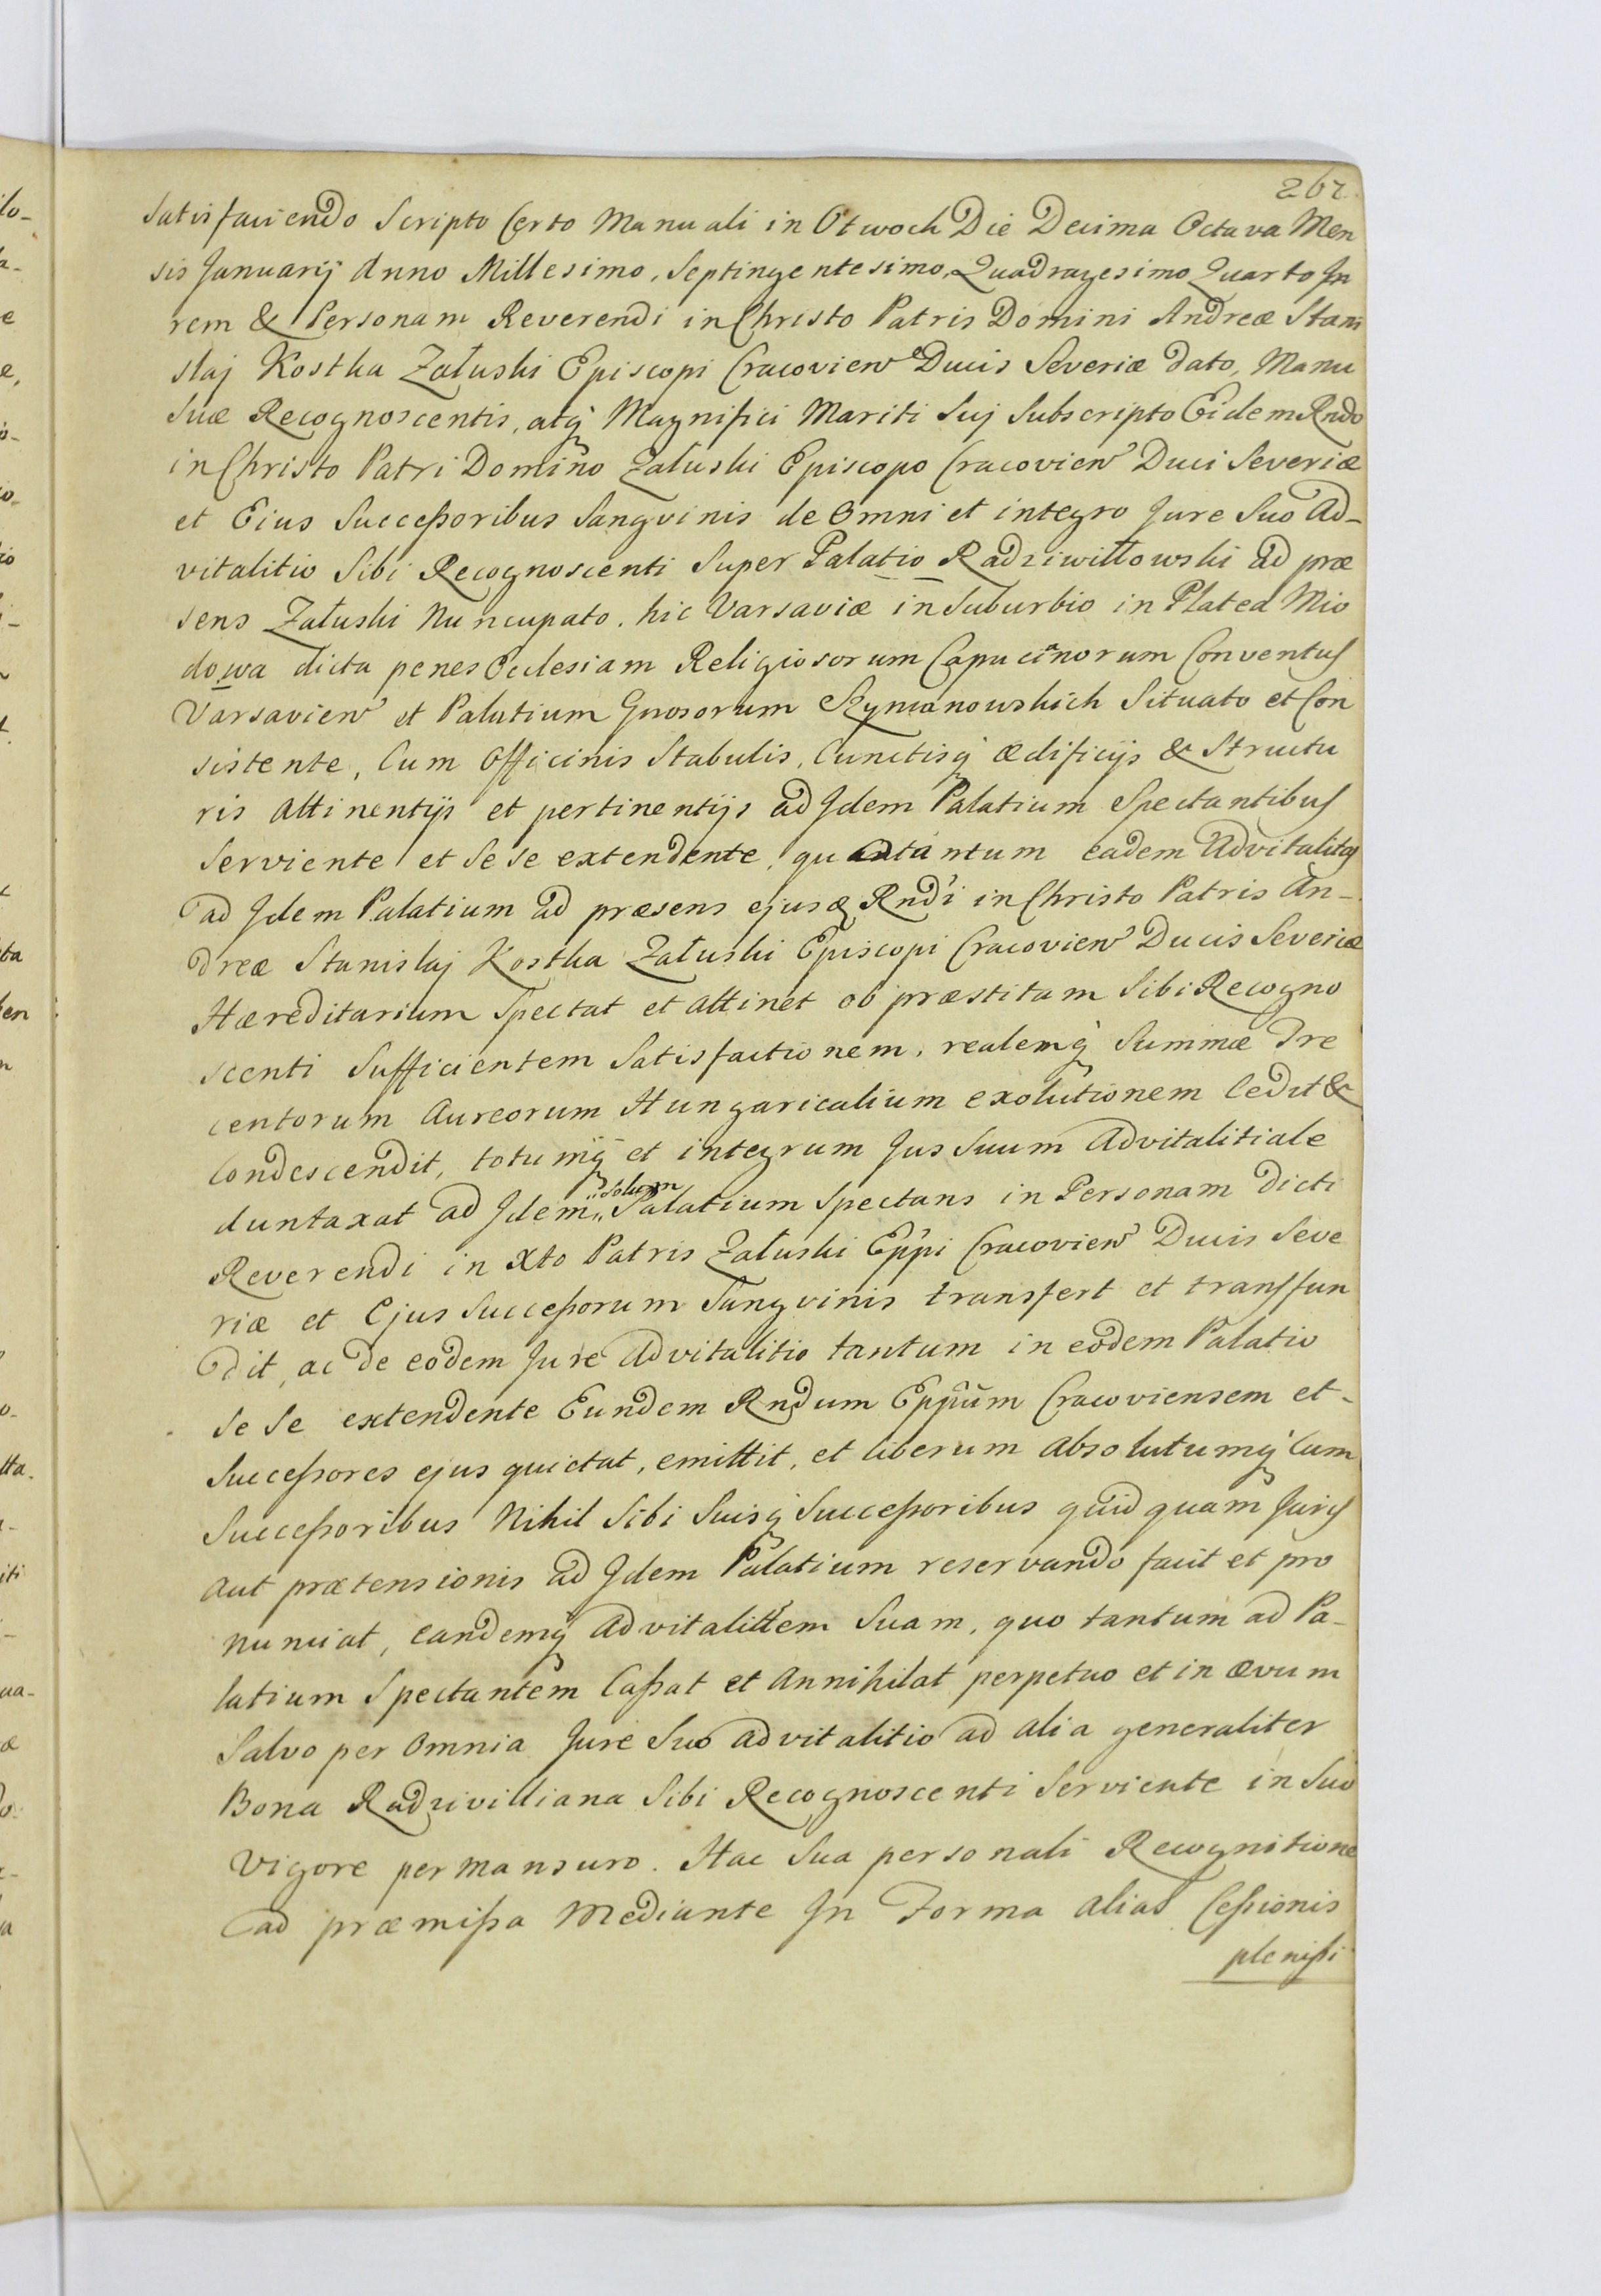 262
Satisfaciendo Scripto Certo Manuali in Otwock Die Decima Octava Men
sis Januarij Anno Millesimo, Septingentesimo, Quadragesimo Quarto In
rem & Personam Reverendi in Christo Patris Domini Andreæ Stani
slaj Kostka Załuski Episcopi Cracovien Ducis Severiæ dato, Manu
Suæ Recognoscentis, atq Magnifici Mariti Suj Subscripto Eidem Rndo
in Christo Patri Domino Załuski Episcopo Cracovien Duci Severiæ
et Eius Successoribus Sangvinis de Omni et integro Jure Suo Ad-
vitalitio Sibi Recognoscenti Super Palatio Radziwiłłowski ad præ
sens Załuski Nuncupato, hic Varsaviæ in Suburbio in Platea Mio
dowa dicta penes Ecclesiam Religiosorum Capucinorum Conventus
Varsavien et Palatium Gnosorum Szymanowskich Situato et Con
sistente, Cum Officinis Stabulis, Cunctisq ædificijs & Structu
ris Attinentijs et pertinentijs ad Idem Palatium Spectantibus
Serviente et Se se extendente, qu tantum eadem Advitalitas
ad Idem Palatium ad præsens ejusq Rndi in Christo Patris An-
dreæ Stanislaj Kostka Załuski Episcopi Cracovien Ducis Severiæ
Hæreditarium Spectat et Attinet ob præstitam Sibi Recogno
scenti Sufficientem Satisfactionem, realemq Summæ Tre
centorum Aureorum Hungaricalium exolutionem Cedit &
Condescendit, totumq et integrum Jus Suum Advitalitiale
duntaxat ad Idem,, ,,Solum Palatium Spectans in Personam dicti
Reverendi in Xto Patris Załuski Eppi Cracovien Ducis Seve
riæ et Ejus Successorum Sangvinis transfert et transfun
dit, ac de eodem Jure Advitalitio tantum in eodem Palatio
Se Se extendente Eundem Rndum Eppum Cracoviensem et-
Successores ejus quietat, emittit, et liberum Absolutumq Cum
Successoribus Nihil Sibi Suisq Successoribus quidquam Juris
Aut prætensionis ad Idem Palatium reservando facit et pro
nunciat, eandemq Advitalittem Suam, quo tantum ad Pa-
latium Spectantem Cassat et Annihilat perpetuo et in ævum
Salvo per Omnia Jure Suo Advitalitio ad alia generaliter
Bona Radzivilliana Sibi Recognoscenti Serviente in Suo
Vigore permansuro. Hac Sua personali Recognitione
ad præmissa Mediante In Forma alias Cessionis
plenissi